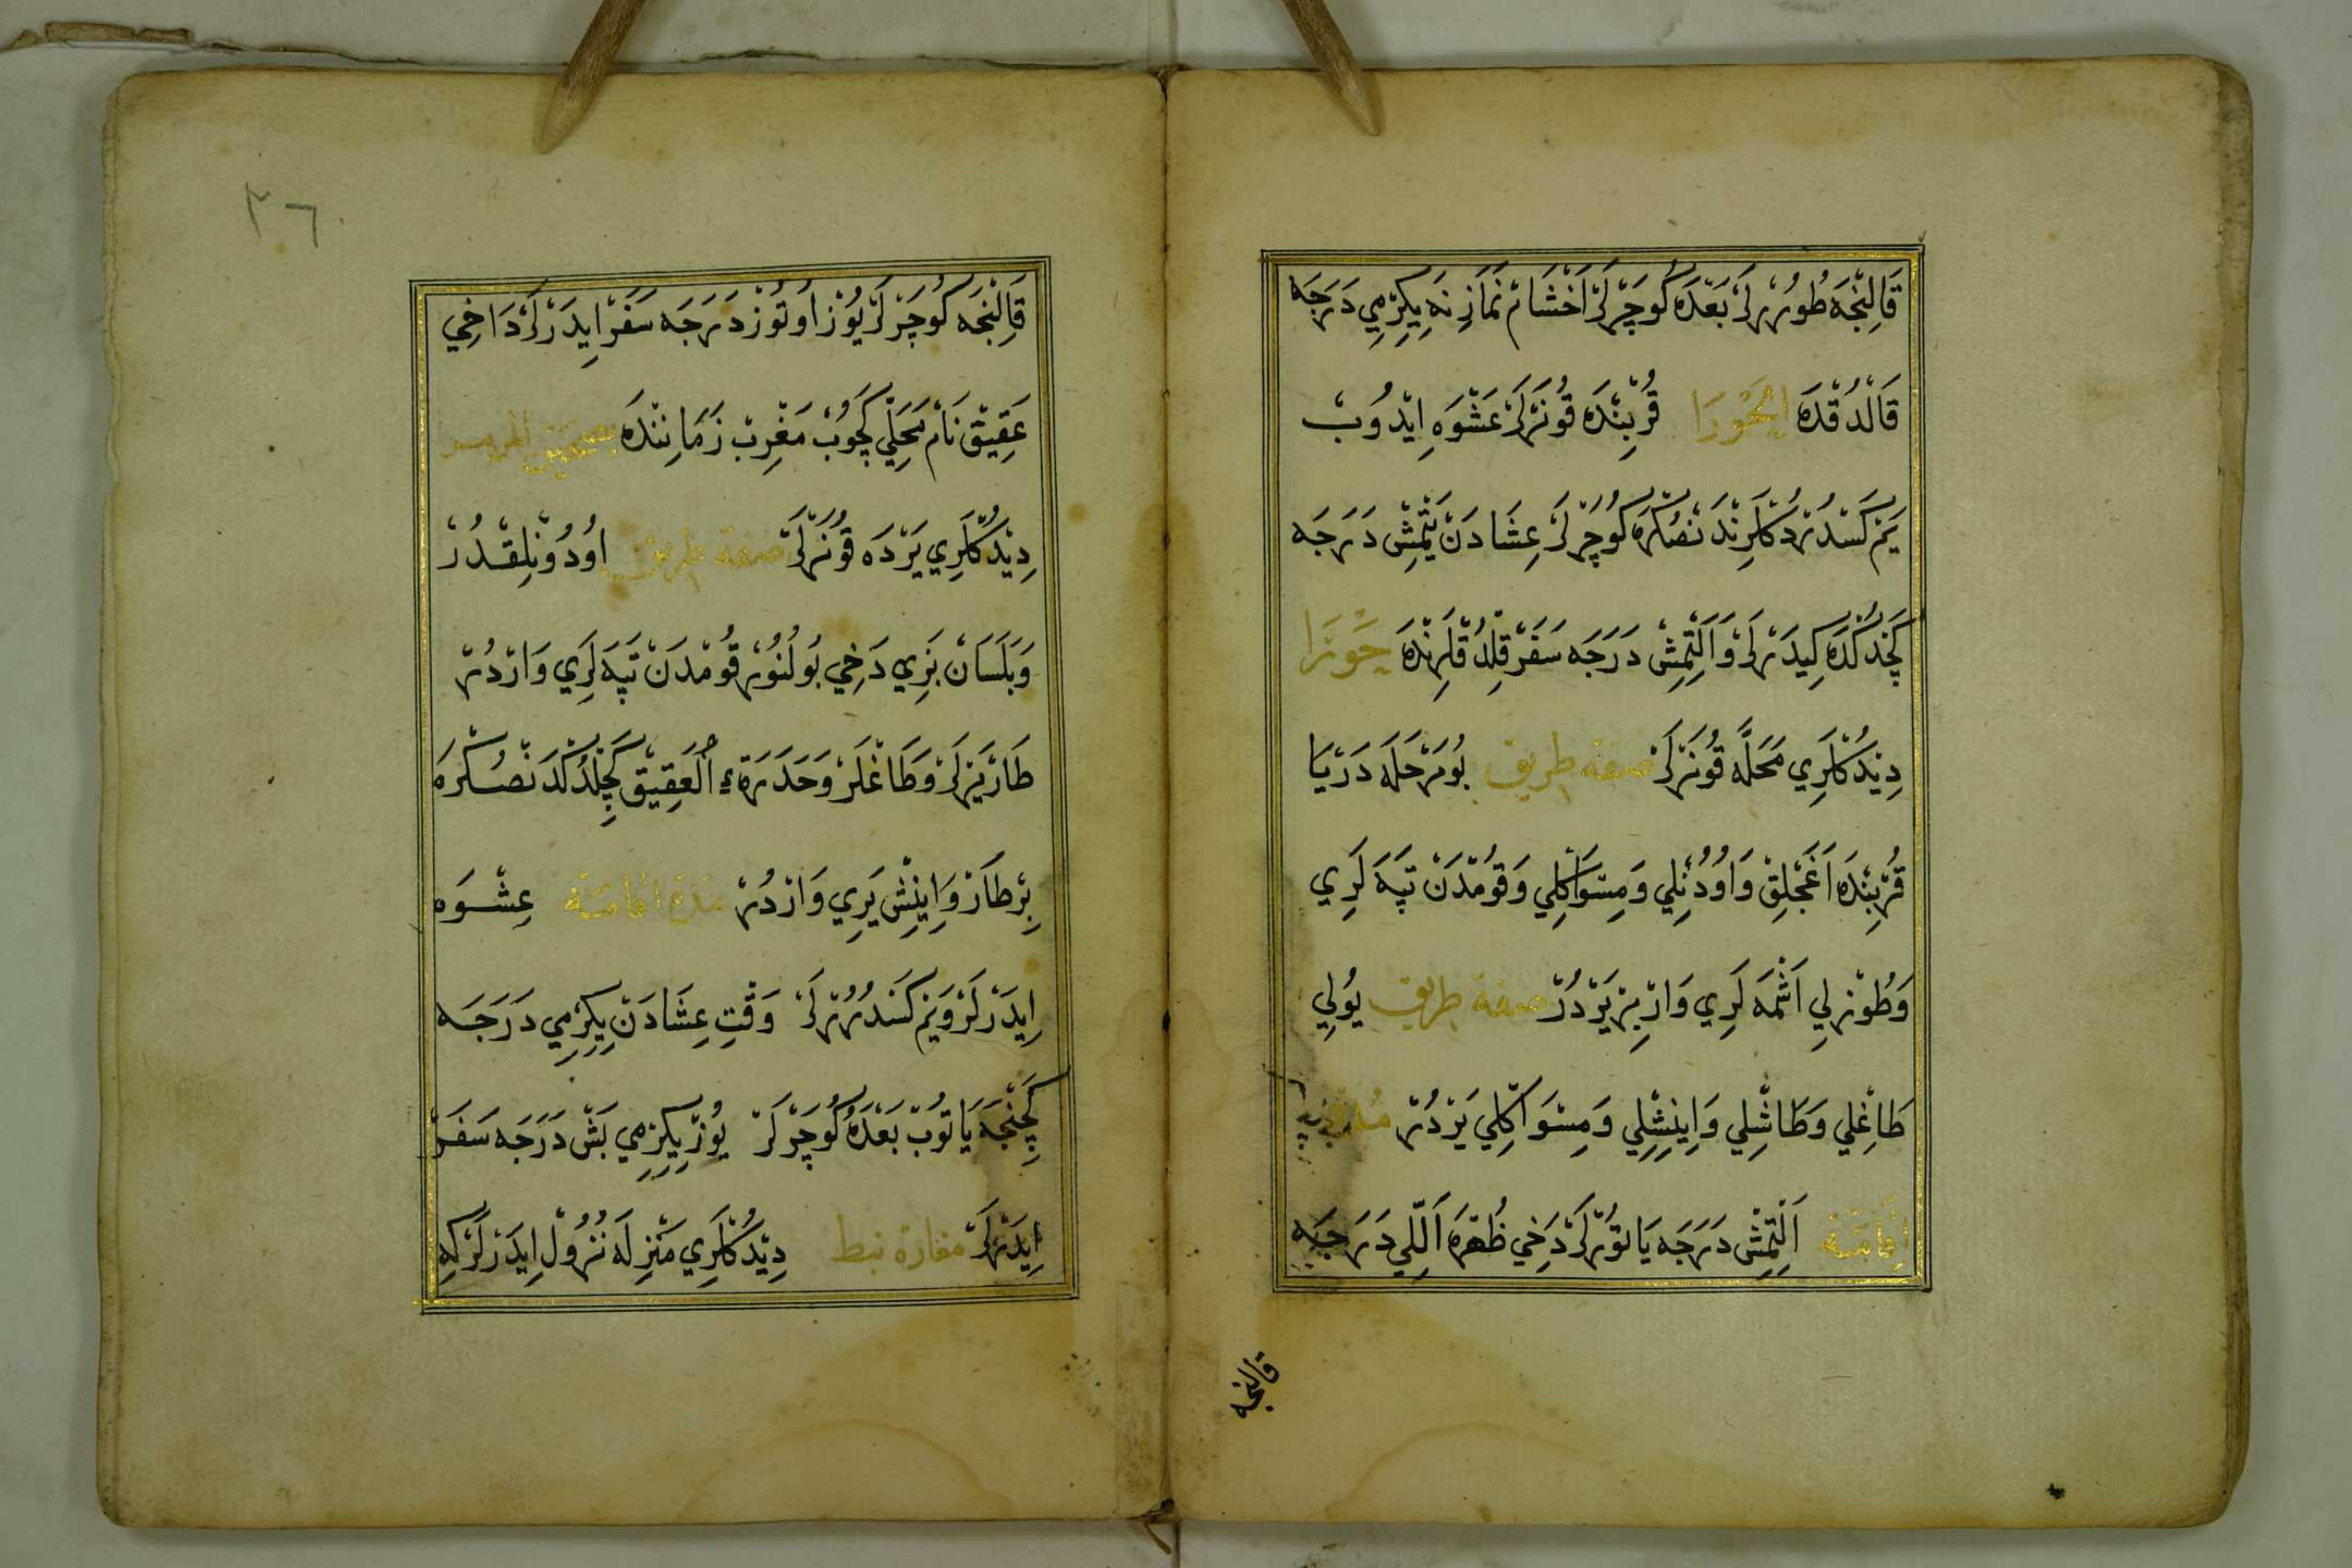 قَالِنْجَه طُورُرْلَرْ بَعْدَهُ كُوچَرْلَرْ اَخْشَامْ نَمَازِنَه يِكِرْمِي دَرَجَه
قَالْدُقْدَه اَلْحَوْرَا قُرْبِنْدَه قُونَرْلَرْ عَشْوَه اِيْدُوبْ
يَمْ كَسْدُرْدُكْلَرِنْدَنْصُكْرَه كُوچَرْلَرْ عِشَادَنْ يَتْمِشْ دَرَجَه
كَچْدُكْدَه كِيدَرْلَرْ وَاَلْتْمِشْ دَرَجَه سَفَرْ قِلْدُقْلَرِنْدَه حَوْرَا
دِيْدُكْلَرِي مَحَلَّه قُونَرْلَرْ صفة طريق بُو مَرْحَلَه دَرْيَا
قُرْبِنْدَه اَغَجْلِقْ وَاُودُنْلِي وَمِسْوَاكْلِي وَقُومْدَنْ تَپَه لَرِي
وَطُوزْلِي اَشْمَه لَرِي وَارْ بِرْ يَرْدُرْ صفة طريق يُولِي
طَاغْلِي وَطَاشْلِي وَاِينِشْلِي وَمِسْوَاكْلِي يَرْدُرْ
اِقَامَتْ اَلْتْمِشْ دَرَجَه يَاتُورْلَرْ دَخِي ظُهْرَه اَللِّي دَرَجَه
قالنجه
٢٦
قَالِنْجَه كُوچَرْلَرْ يُوزْ اُوتُوزْ دَرَجَه سَفَرْ اِيدَرْلَرْ دَاخِي
عَقِيقْ نَامْ مَحَلِّي كَچُوبْ مَغْرِبْ زَمَانِنْدَه
دِيْدُكْلَرِي يَرْدَه قُونَرْلَرْ صفة طريق اُودُونْلِقْدُرْ
وَبَلَسَانْ بَزِرِي دَخِي بُولُنُورْ قُومْدَنْ تَپَه لَرِي وَارْدُرْ
طَارْ يَرْلَرْ وَطَاغْلَرْ وَحَدَرَةِ الْعَقِيقْ كَچِلْدُكْدَنْصُكْرَه
بِرْ طَارْ وَاِينِشْ يَرِي وَارْدُرْ مدة اقامته عِشْوَه
اِيدَرْلَرْ وَيَمْ كَسْدُرُرْلَرْ وَقْتِ عِشَادَنْ يِكِرْمِي دَرَجَه
كَچِنْجَه يَاتُوبْ بَعْدَهُ كُوچَرْلَرْ يُوزْ يِكِرْمِي بَشْ دَرَجَه سَفَرْ
اِيدَرْلَرْ مغارة نبط دِيْدُكْلَرِي مَنْزِلَه نُزُولْ اِيدَرْلَرْ كِه